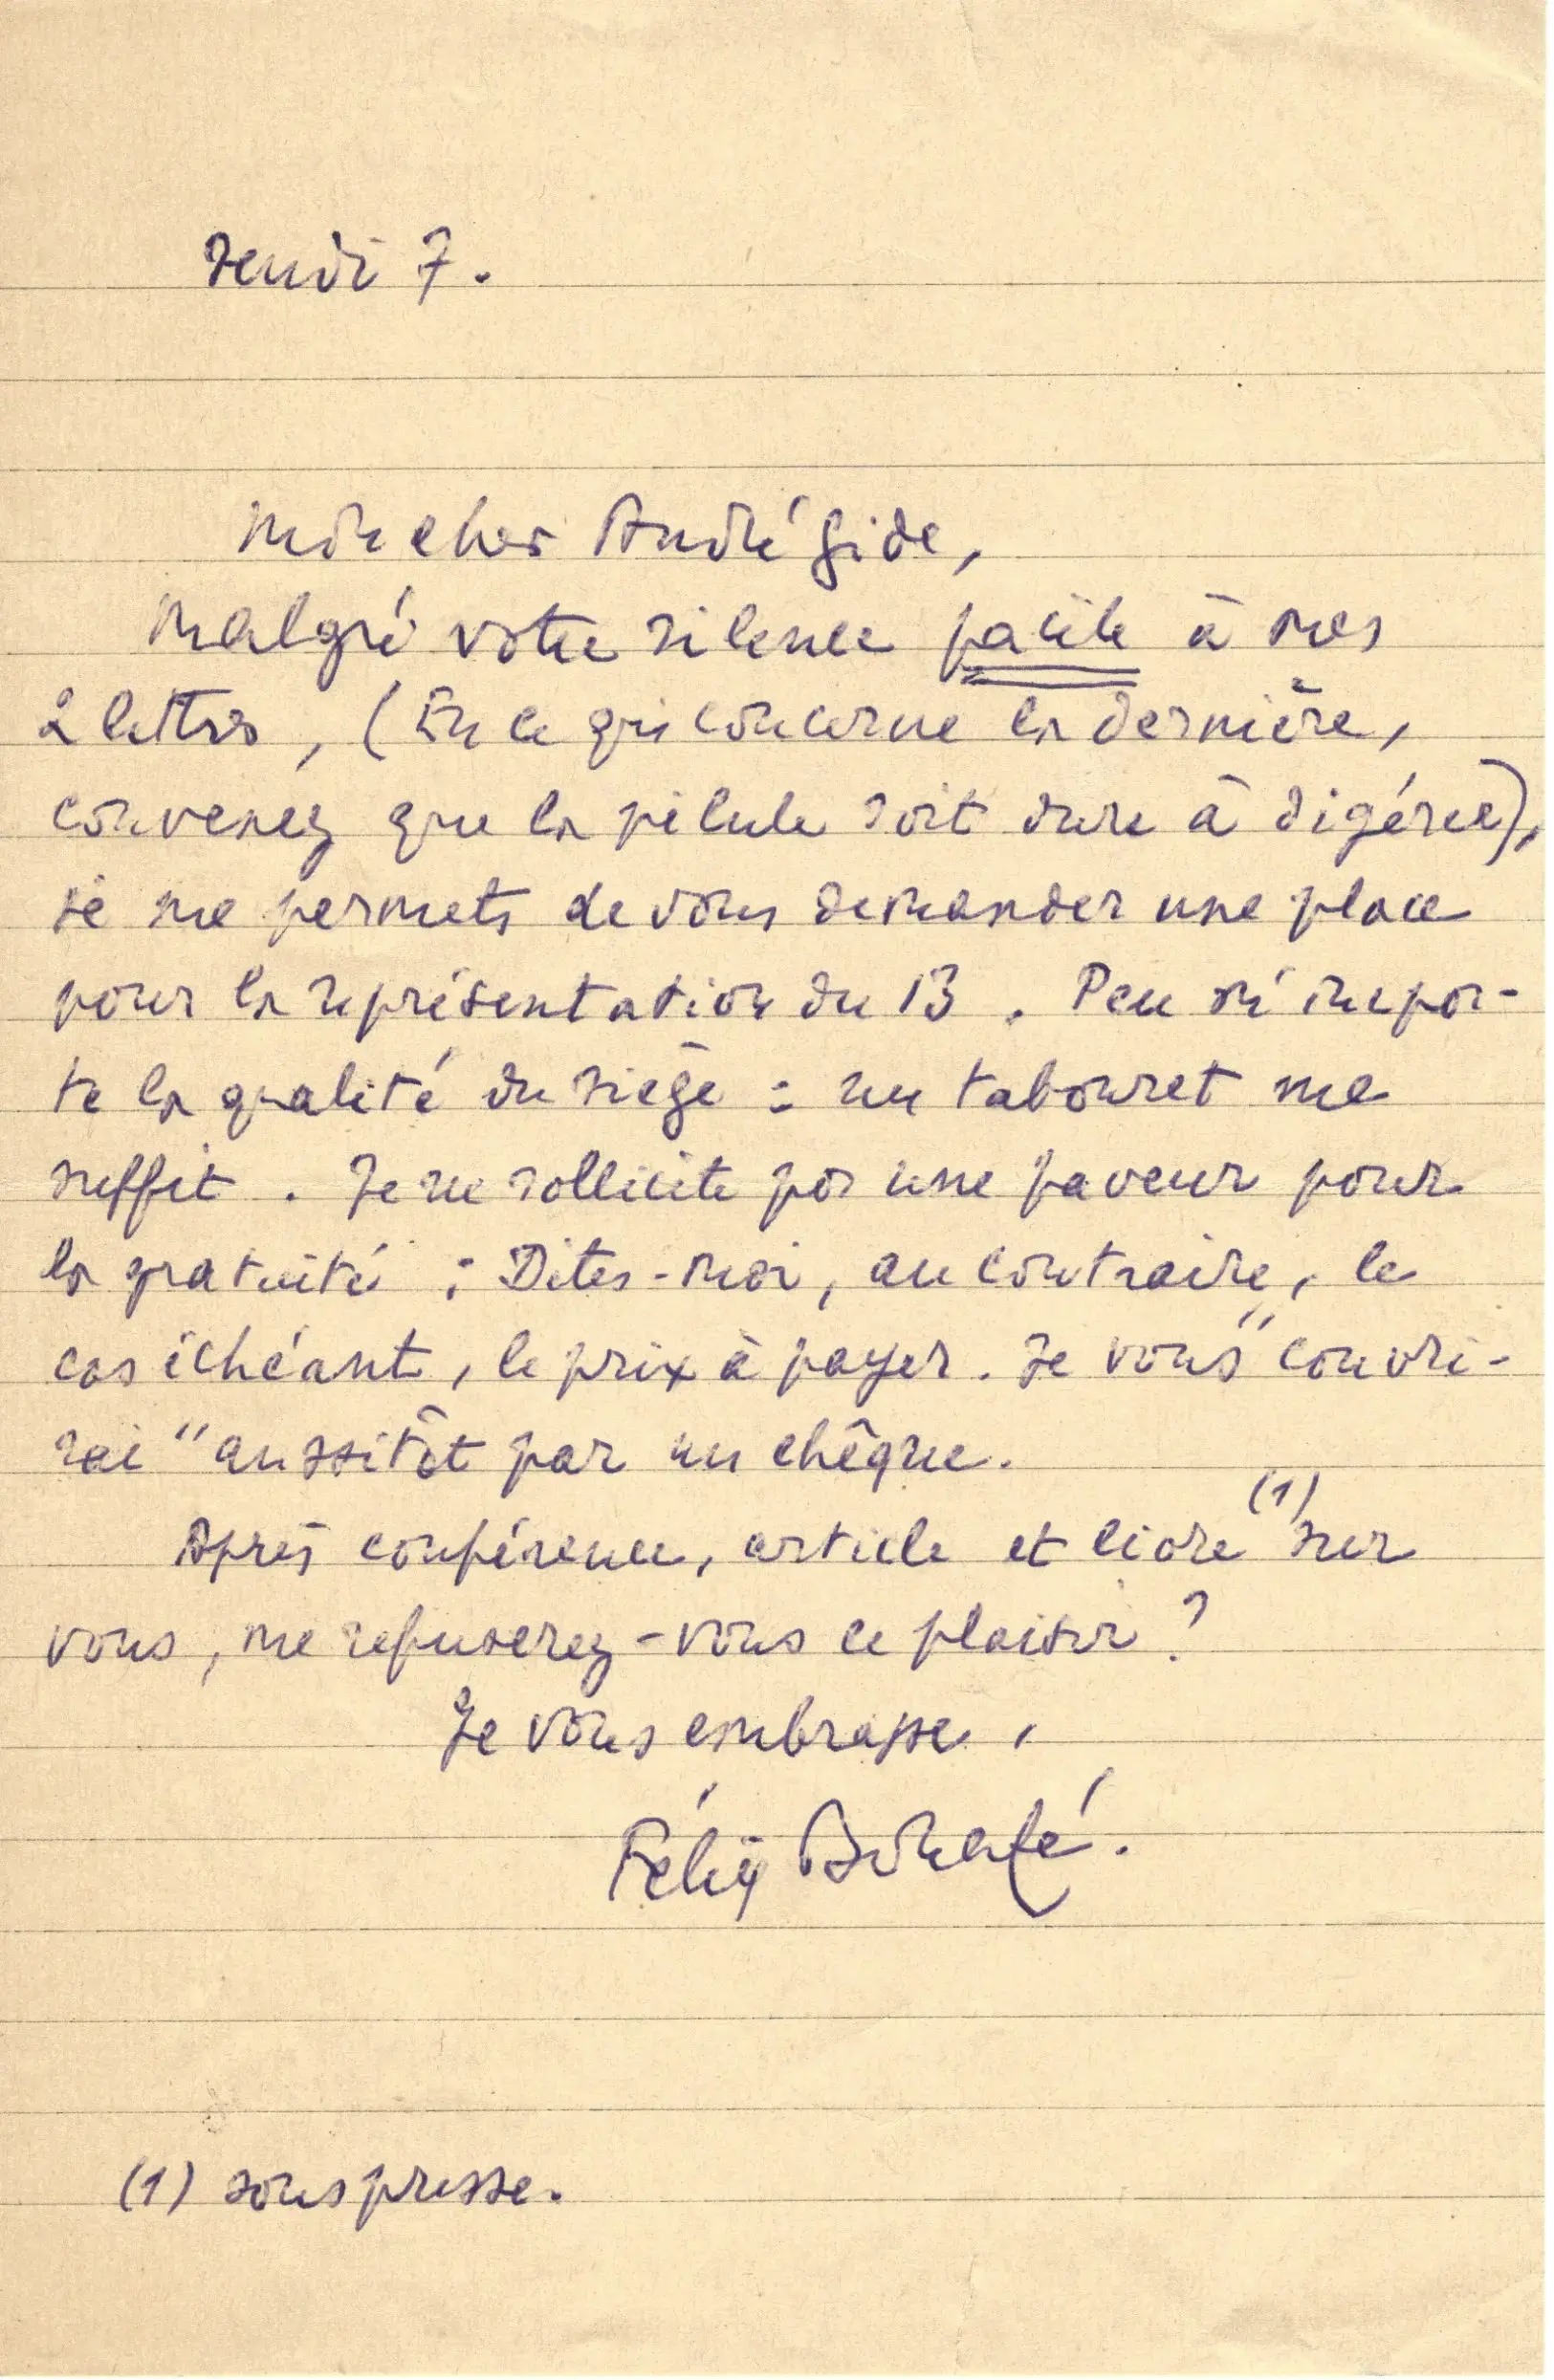 Jeudi 7.
Mon cher André Gide,
Malgré votre silence facile à mes
2 lettres, (En ce qui concerne la dernière,
convenez que la pilule soit dure à digérer),
je me permets de vous demander une place
pour la représentation du 13. Peu m'impor-
te la qualité du siège : un tabouret me
suffit. Je ne sollicite pas une faveur pour
la gratuité : Dites-moi, au contraire, le
cas échéant, le prix à payer. Je vous "couvri-
rai" aussitôt par un chèque.
Après conférence, article et livre (1) sur
vous, me refuserez-vous ce plaisir ?
Je vous embrasse,
Félix
(1) sous presse.